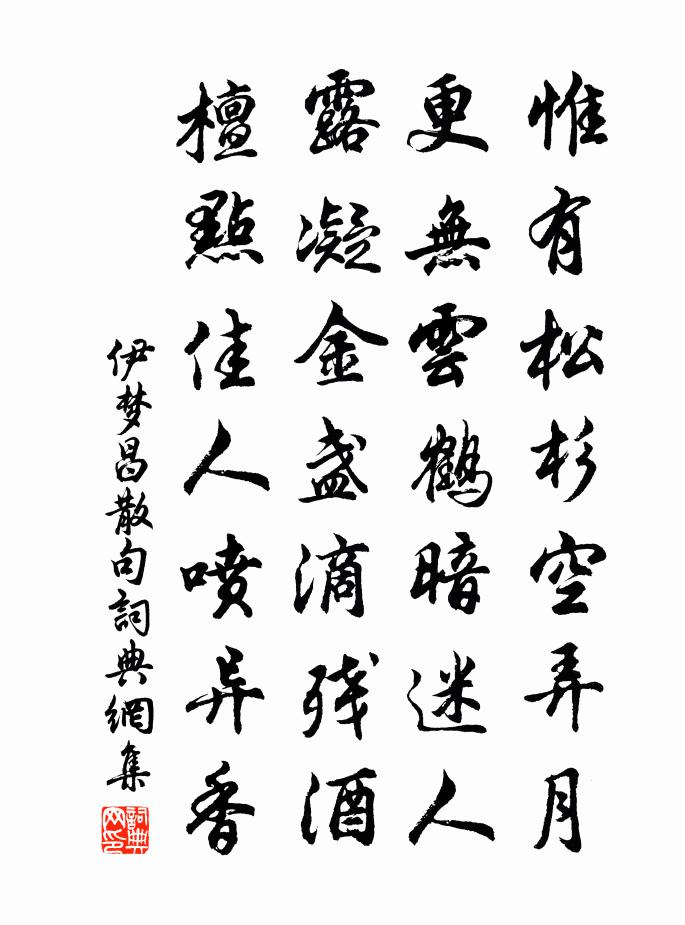 惟有松杉空弄月
更無雲鶴暗迷人
露凝金盏滴残酒
檀點佳人噴异香
伊梦昌散句詞典網集
詞典网印